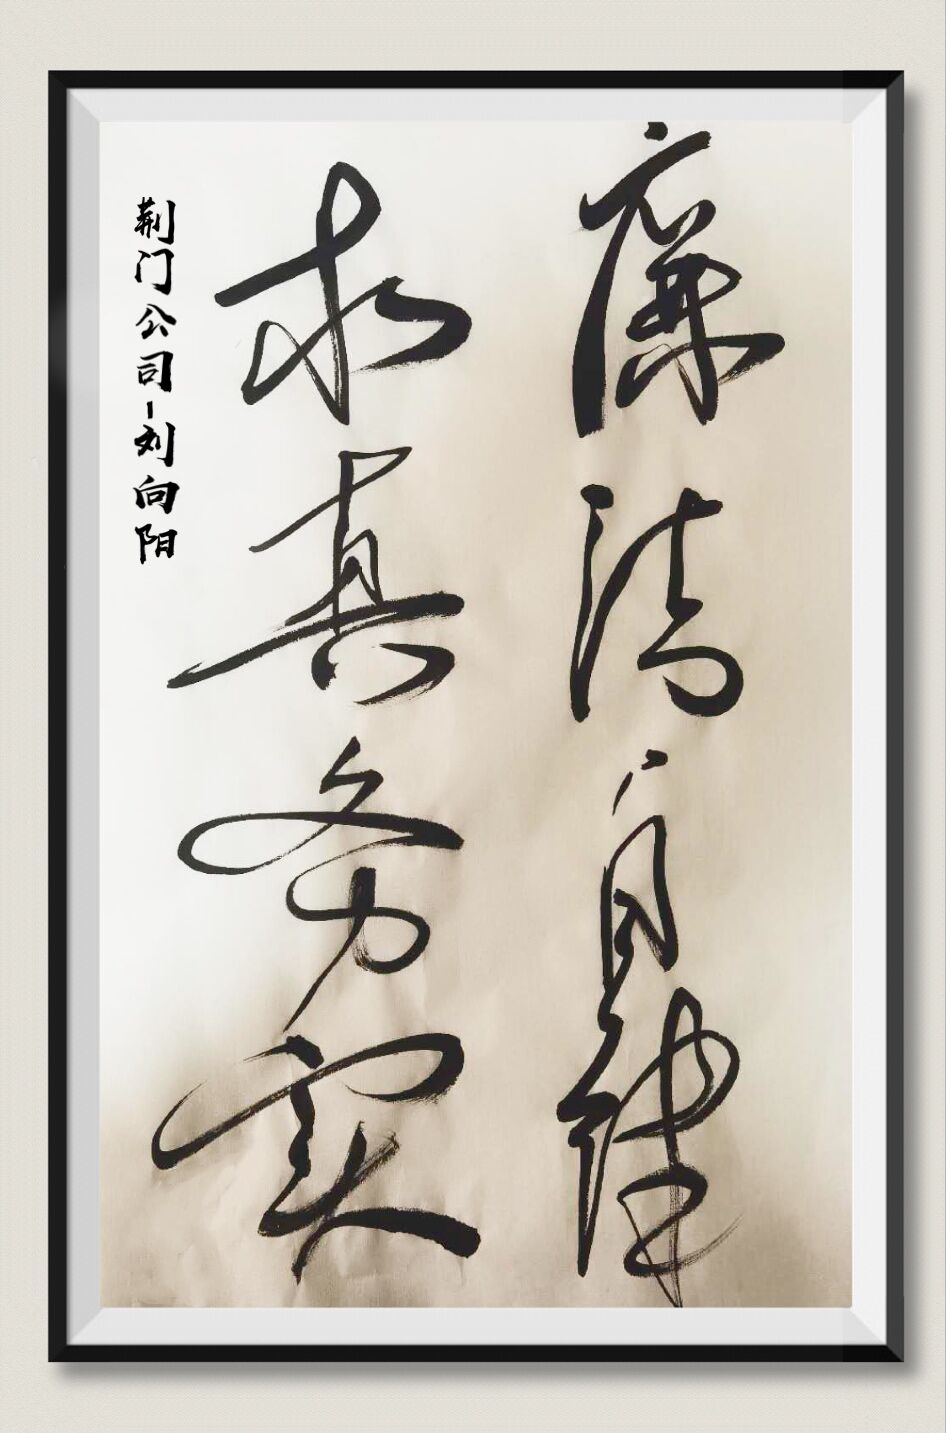 廉洁自律
求真务实
荆门公司-刘向阳